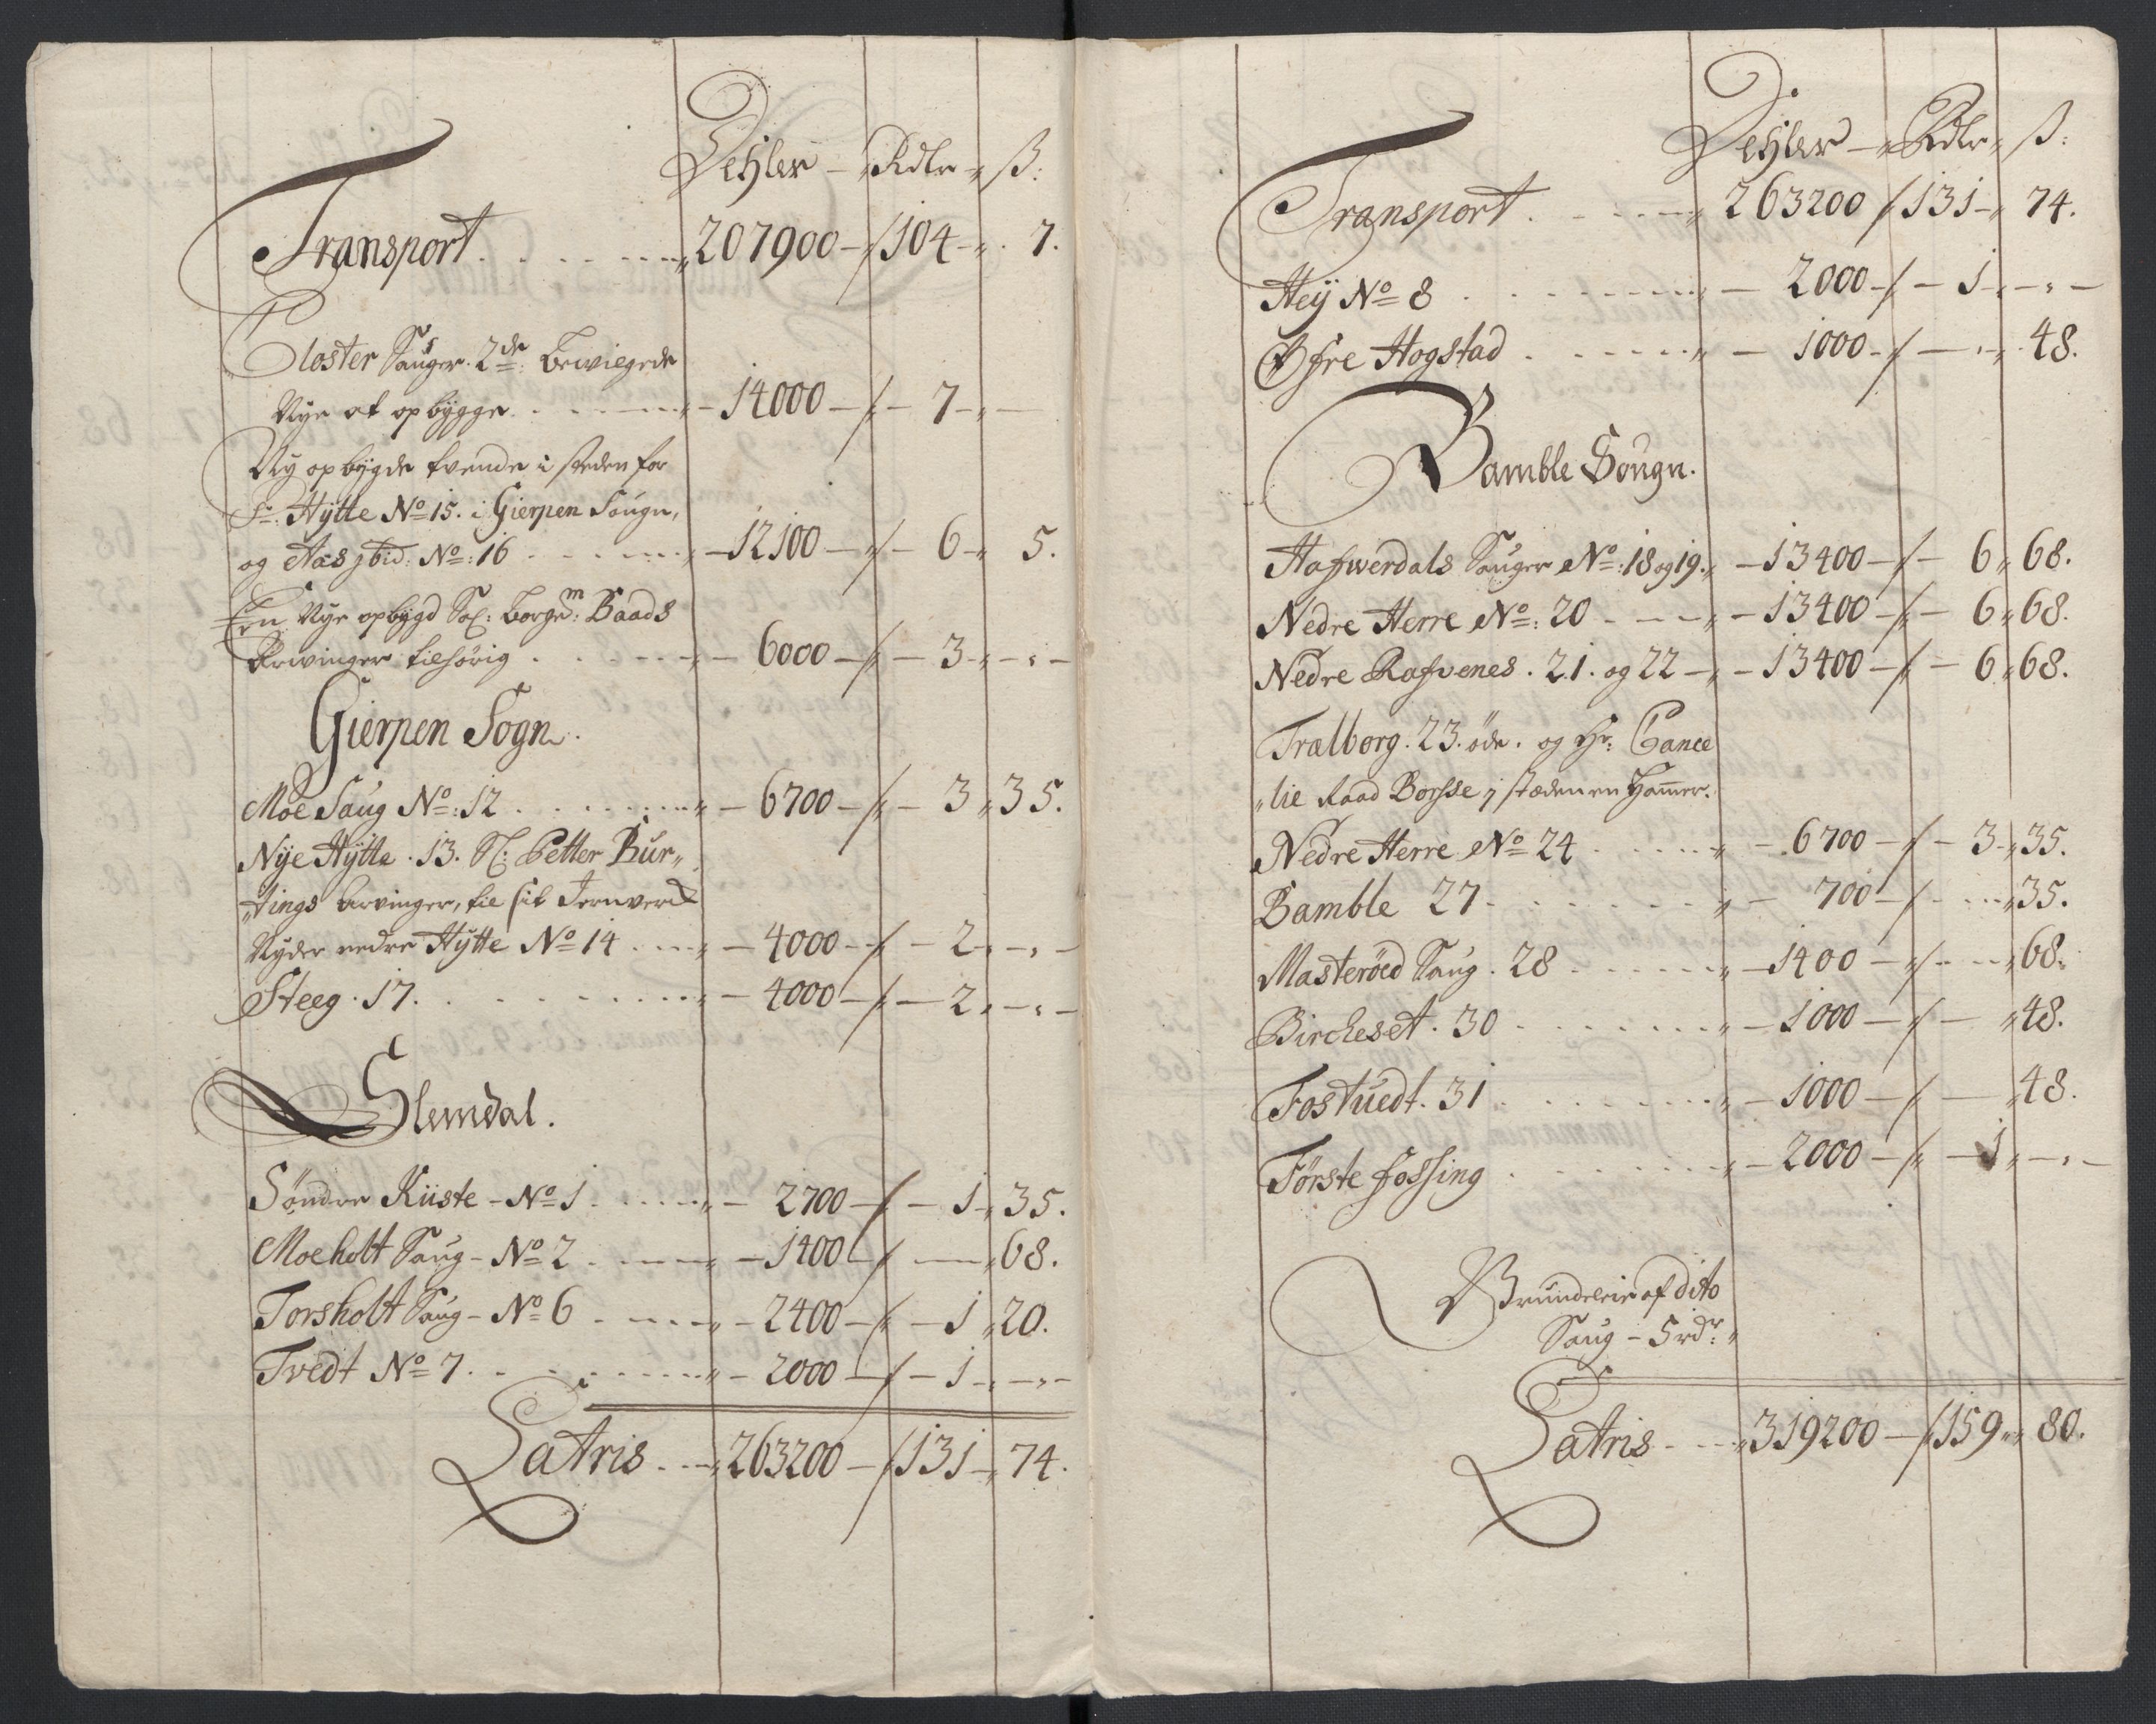 Dehler – Rdlr ß:
Transport . . . . . 207900 – 104 – 7.
Closter Sauger. 2de: Bewilgede
Nye at opbygge . . . – 14000 – 7 –
Ny opbygde tvende i steden for
Hytte No 15. i Gierpen Sougn,
og Aas ibid: No: 16 . . . – 12100 – 6 – 5.
En Nye opbygd Sal: Borgem: Baads
Arvinger tilhørig . . . – 6000 – 3 – –
Gierpen Sogn.
Moe Saug No: 12 . . . . – 6700 – 3 35.
Nye Hytte . 13. Sl: Petter Bür„
„tings arvinger, til sit Jernverck
Nyder nedre Hytte No 14 . . . – 4000 – 2 – –
Steeg . 17. . . . . – 4000 – 2 – –
Slemdal.
Søndre Kiiste – No 1 . . . . – 2700 – 1 35.
Moeholt Saug – No 2 . . . – 1400 – 68.
Torsholt Saug – No 6 . . . – 2400 – 1 20.
Tvedt No 7. . . . . – 2000 – 1 – –
Latris . . . 263200 – 131 – 74.
Dehler – Rdlr ß:
Transport . . . . 263200 131 – 74.
Heÿ No 8 . . . . – 2000 – 1 – –
Øfre Hogstad . . . . – 1000 – – 48.
Bamble Sougn.
Hafwerdals Sauger No: 18 og 19. – 13400 – 6 68.
Nedre Herre No: 20 . – – – 13400 – 6 68.
Nedre Rafvenes . 21. og 22 – – 13400 – 6 68.
Trælborg. 23. öde. og Hr: Cance
„lie Raad Borsse i stæden en Hammer.
Nedre Herre No 24 . . . . – 6700 – 3 – 35.
Bamble 27 . . . . . – 700 – . . 35.
Masteröed Saug . 28 . . . . – 1400 – – 68.
Bircheset . 30 . . . . . – 1000 – – 48.
Fostuedt. 31 . . . . . – 1000 – – 48.
Første fossing . . . . – 2000 – – 1 – –
Grundeleie af dito
Saug – 5 rdr:
Latris . . . 319200 – 159 80.